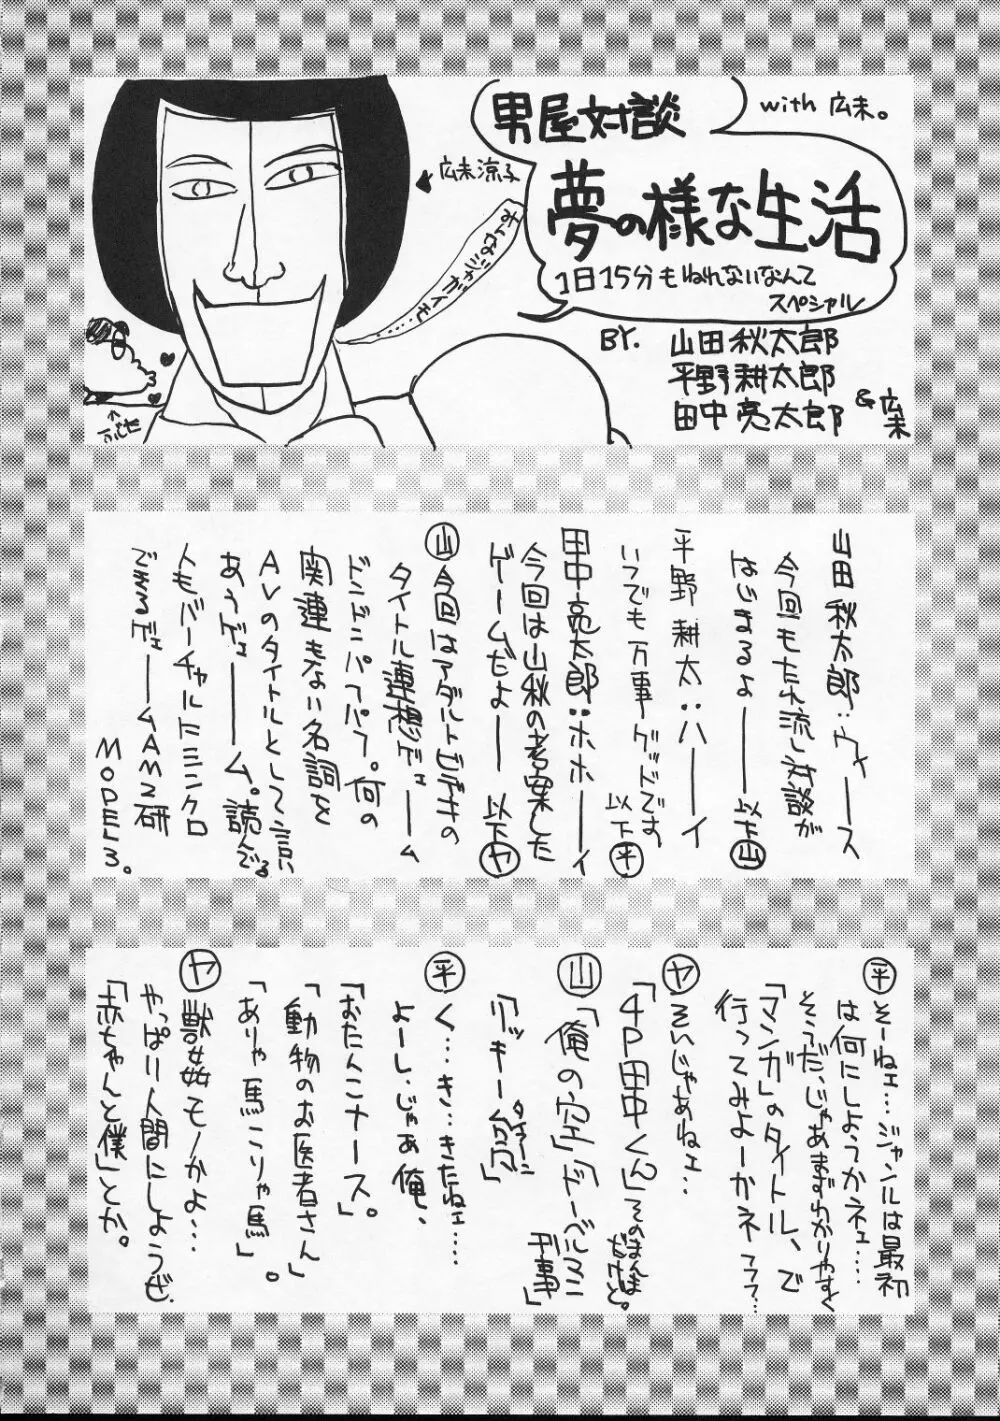 男屋対談
with 広末。
夢の様な生活
1日15分もねれないなんて
スペシャル
広末涼子
BY.
山田秋太郎
平野耕太郎
田中亮太郎
&広末
山田秋太郎:ウィース
今回もたれ流し対談が
はじまるよ――以下山
平野耕太:ハーイ
いつでも万事グッドです
以下平
田中亮太郎:ホホーイ
今回は山秋の考案した
ゲームだよー以下ヤ
山 今回はアダルトビデオの
タイトル連想ゲェーム
ドンドンパフパフ。何の
関連もない名詞を
AVのタイトルとして言い
あうゲェーーム。読んでる
人もバーチャルにシンクロ
できるゲェーームAM2研
MODEL3。
平 そーねェ…ジャンルは最初
は何にしようかネェ…
そうだ、じゃあまずわかりやすく
「マンガ」のタイトル、で
行ってみよーかネフフフ…
ヤ そいじゃあねェ…
「4P田中くん」そのまんま
だけど。
山 「俺の空」「ドーベルマン
刑事」
平 く…き…きたねェ……
よーし、じゃあ俺、
「おたんこナース」。
「動物のお医者さん」
「ありゃ馬こりゃ馬」。
ヤ 獣姦モノかよ…
やっぱり人間にしようぜ.
「赤ちゃんと僕」とか。